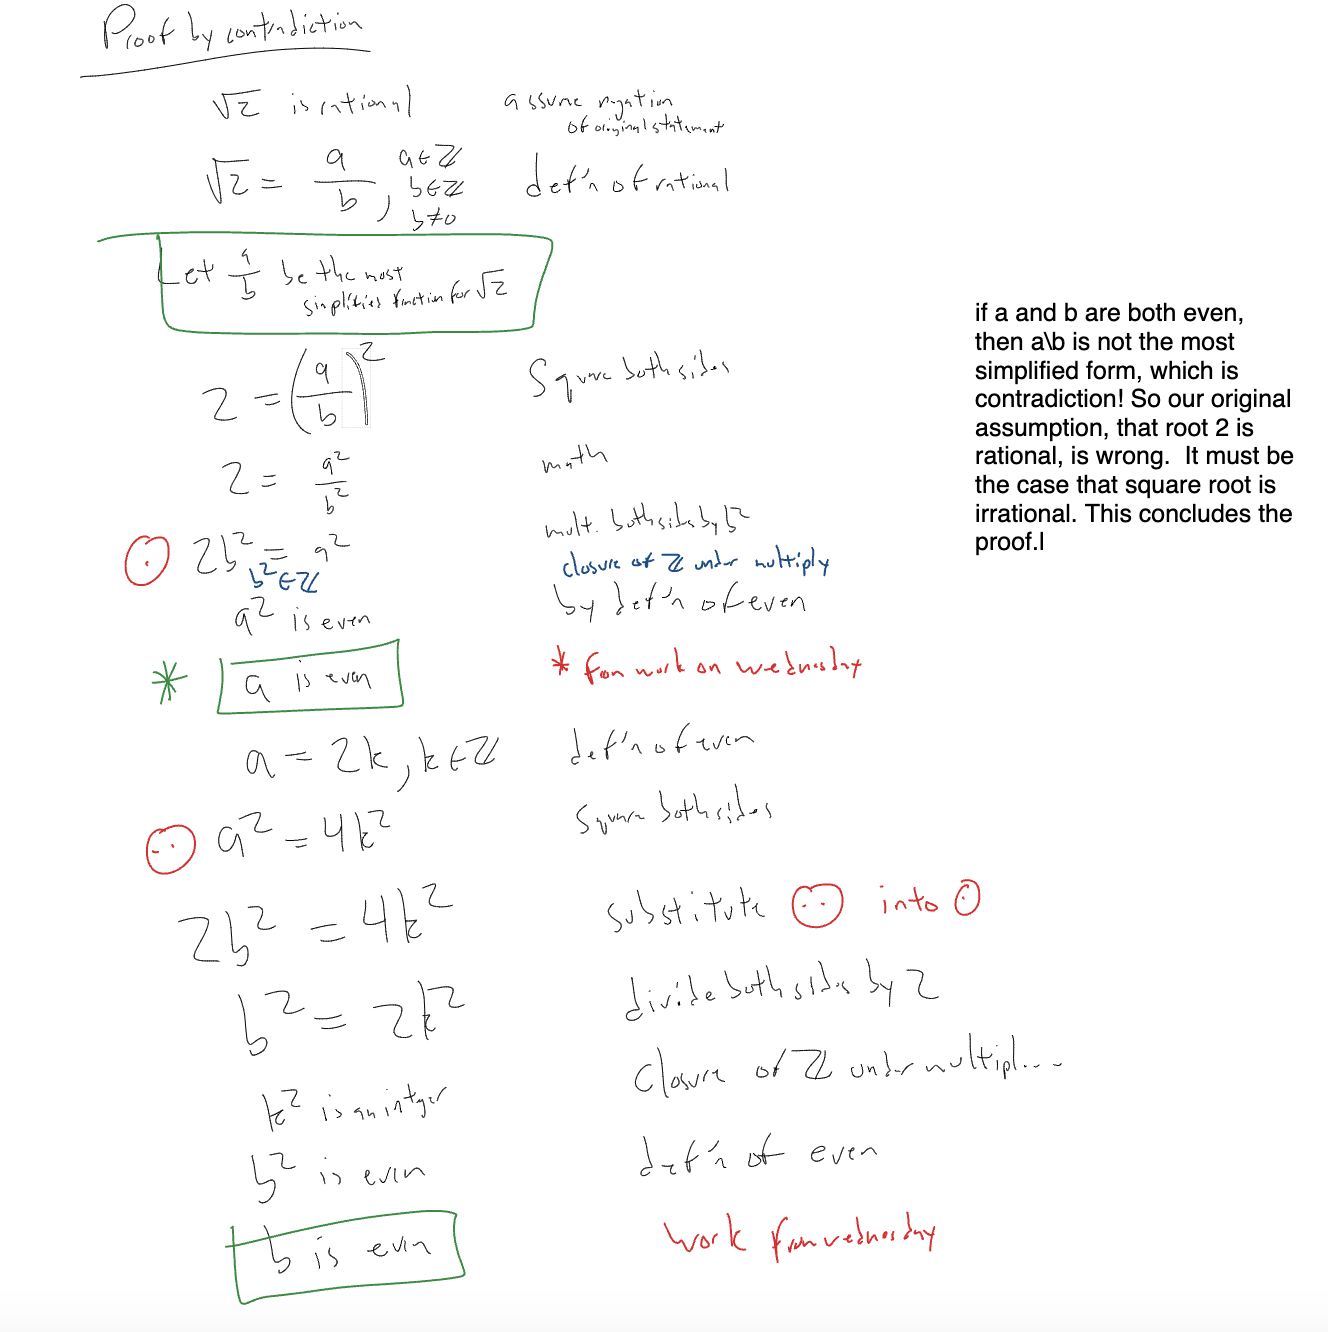 Proof by contradiction
√2 is rational assume negation
of original statement
√2 = a/b, a∈ℤ b∈ℤ b≠0 def'n of rational
Let a/b be the most
simplified fraction for √2
2 = (a/b)² Square both sides
2 = a²/b² math
⊙ 2b² = a² mult. both sides by b²
b²∈ℤ closure of ℤ under multiply
a² is even by def'n of even
* a is even * from work on wednesday
a = 2k, k∈ℤ def'n of even
(··) a² = 4k² Square both sides
2b² = 4k² substitute (··) into ⊙
b² = 2k² divide both sides by 2
k² is an integer Closure of ℤ under multipl...
b² is even def'n of even
b is even work from wednesday
if a and b are both even,
then a\b is not the most
simplified form, which is
contradiction! So our original
assumption, that root 2 is
rational, is wrong.  It must be
the case that square root is
irrational. This concludes the
proof.